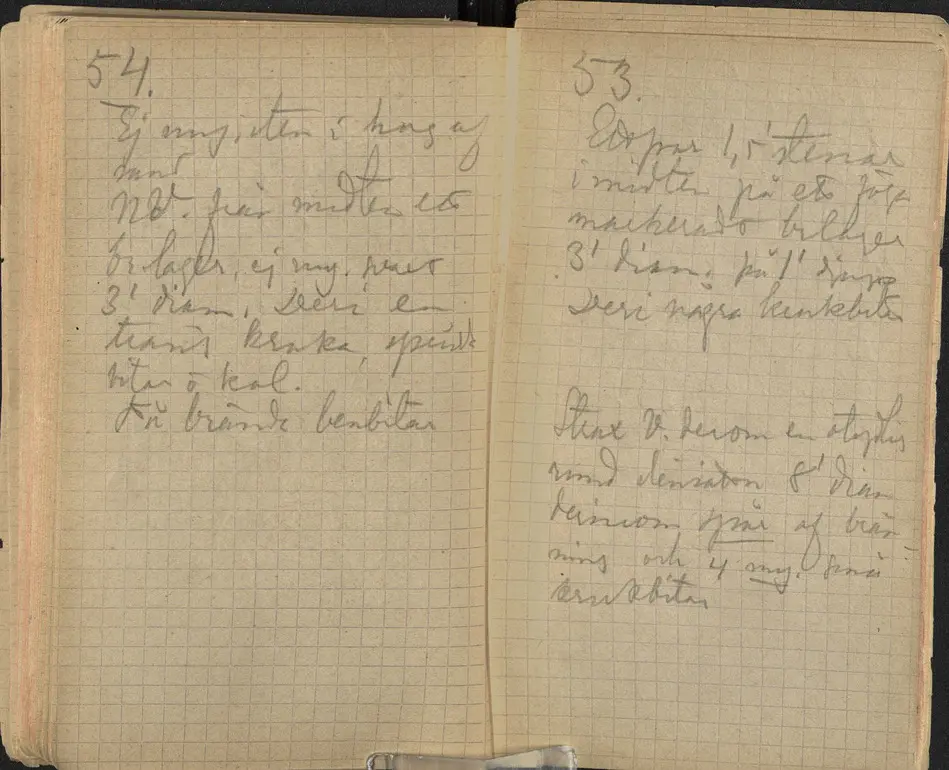 54.
Ej my. sten i hog af
sand
NV. från midten ett
brlager, ej my. svart
3' diam. Deri en
trasig kruka, spridda
bitar o kol.
Få brända benbitar
53.
Ett par 1,5' stenar
i midten på ett föga
markeradt brlager
3' diam. på 1' djup
Deri några krukbitar
Strax V. derom en otydlig
rund stensättn 8' diam
derinom spår af brän-
ning och 4 my. små
krukbitar